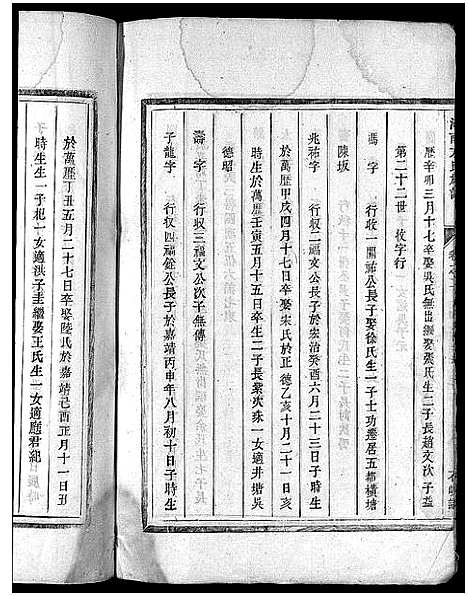 曆辛卯三月十七卒娶吳氏無出繼娶張氏生二子長趙文次子益
第二十二世 牧字行
馮字 行收一關祐公長子娶徐氏生一子士功遷居五都橫塘
陳坂
兆祐字 行収二福文公長子於宏治癸酉六月二十三日子時生
於萬歷甲戌四月十七日卒娶宋氏於正德乙亥十月二十一日亥
時生於萬歷壬寅五月十五日卒生二子長紫次珠一女適井塘吳
德昭
壽字 行収三福文公次子無傳
子龍字 行収四福銓公長子於嘉靖丙申年八月初十日子時生
於萬歷丁丑五月二十七日卒娶陸氏於嘉靖己酉正月十一日丑
時生生一子杞一女適洪子圭繼娶王氏生一女適應君紀